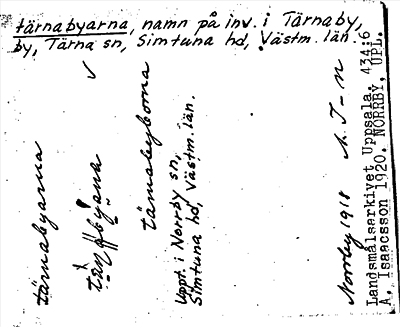 tärnabyarna, namn på inv. i Tärnaby,
by, Tärna sn, Simtuna hd, Västm. län.
tärnabyarna
tärnabyborna
Uppt. i Norrby sn,
Simtuna hd, Västm. län.
Norrby 1918
Landsmålsarkivet Uppsala 434:6
A. Isaacsson 1920. NORRBY, UPL.